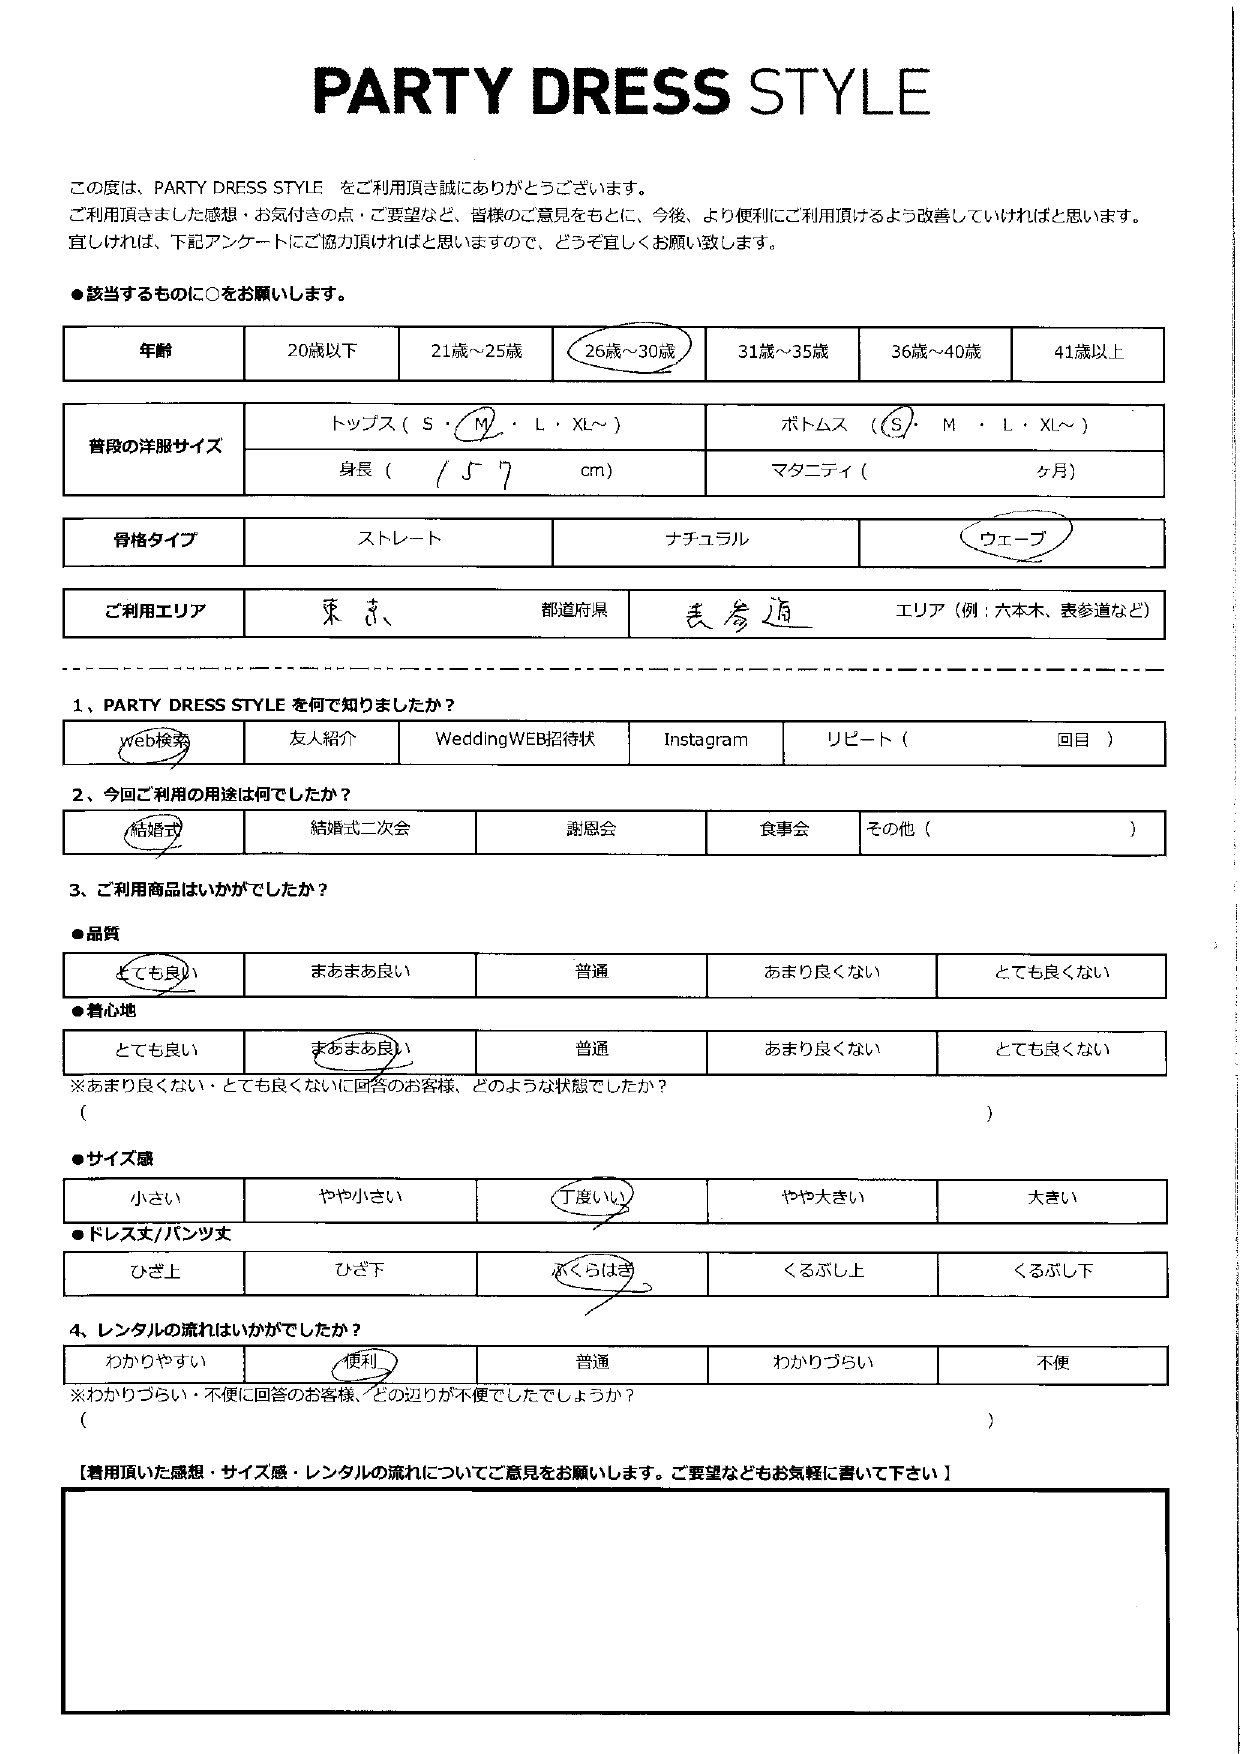 PARTY DRESS STYLE
この度は、PARTY DRESS STYLE をご利用頂き誠にありがとうございます。
ご利用頂きました感想・お気付きの点・ご要望など、皆様のご意見をもとに、今後、より便利にご利用頂けるよう改善していければと思います。
宜しければ、下記アンケートにご協力頂ければと思いますので、どうぞ宜しくお願い致します。
●該当するものに○をお願いします。
年齢 20歳以下 21歳～25歳 26歳～30歳 31歳～35歳 36歳～40歳 41歳以上
普段の洋服サイズ トップス ( S ・ M ・ L ・ XL～ ) ボトムス ( S ・ M ・ L ・ XL～ )
身長 ( 157 cm) マタニティ ( ヶ月)
骨格タイプ ストレート ナチュラル ウェーブ
ご利用エリア 東京 都道府県 表参道 エリア（例：六本木、表参道など）
1、PARTY DRESS STYLE を何で知りましたか？
web検索 友人紹介 WeddingWEB招待状 Instagram リピート ( 回目 )
2、今回ご利用の用途は何でしたか？
結婚式 結婚式二次会 謝恩会 食事会 その他 ( )
3、ご利用商品はいかがでしたか？
●品質
とても良い まあまあ良い 普通 あまり良くない とても良くない
●着心地
とても良い まあまあ良い 普通 あまり良くない とても良くない
※あまり良くない・とても良くないに回答のお客様、どのような状態でしたか？
( )
●サイズ感
小さい やや小さい 丁度いい やや大きい 大きい
●ドレス丈/パンツ丈
ひざ上 ひざ下 ふくらはぎ くるぶし上 くるぶし下
4、レンタルの流れはいかがでしたか？
わかりやすい 便利 普通 わかりづらい 不便
※わかりづらい・不便に回答のお客様、どの辺りが不便でしたでしょうか？
( )
【着用頂いた感想・サイズ感・レンタルの流れについてご意見をお願いします。ご要望などもお気軽に書いて下さい 】